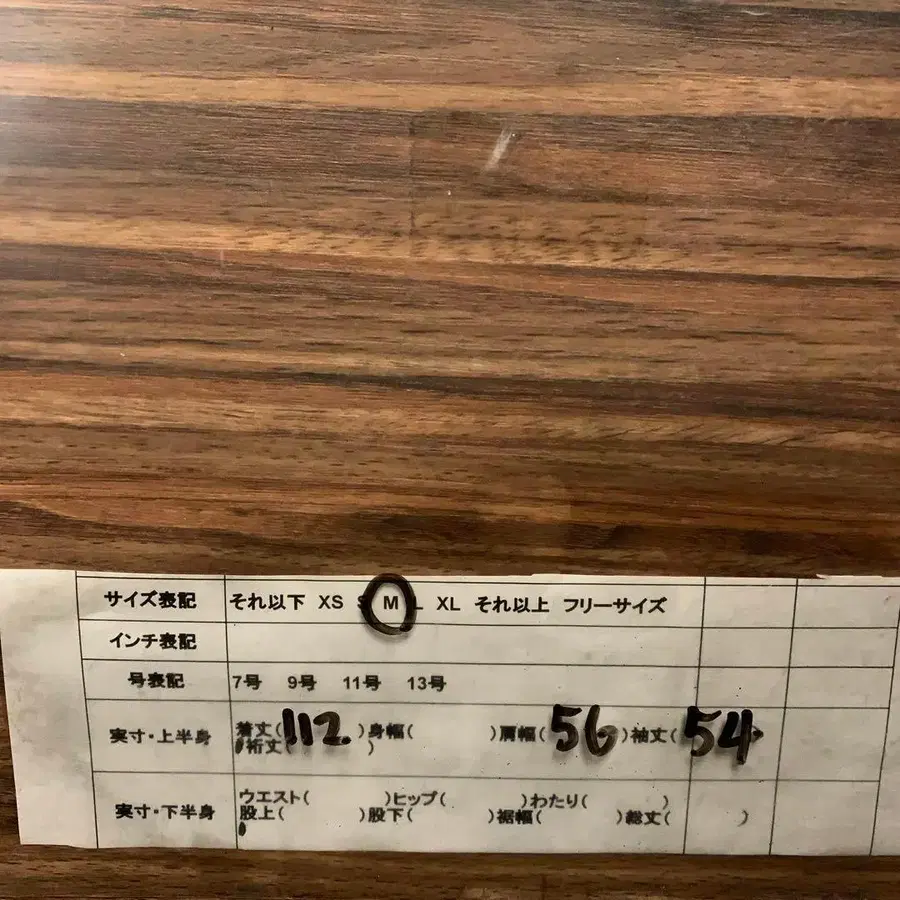 サイズ表記 それ以下 XS S M L XL それ以上 フリーサイズ
インチ表記
号表記 7号 9号 11号 13号
実寸・上半身 着丈(112)身幅( )肩幅(56)袖丈(54)
裄丈( )
実寸・下半身 ウエスト( )ヒップ( )わたり( )
股上( )股下( )裾幅( )総丈( )